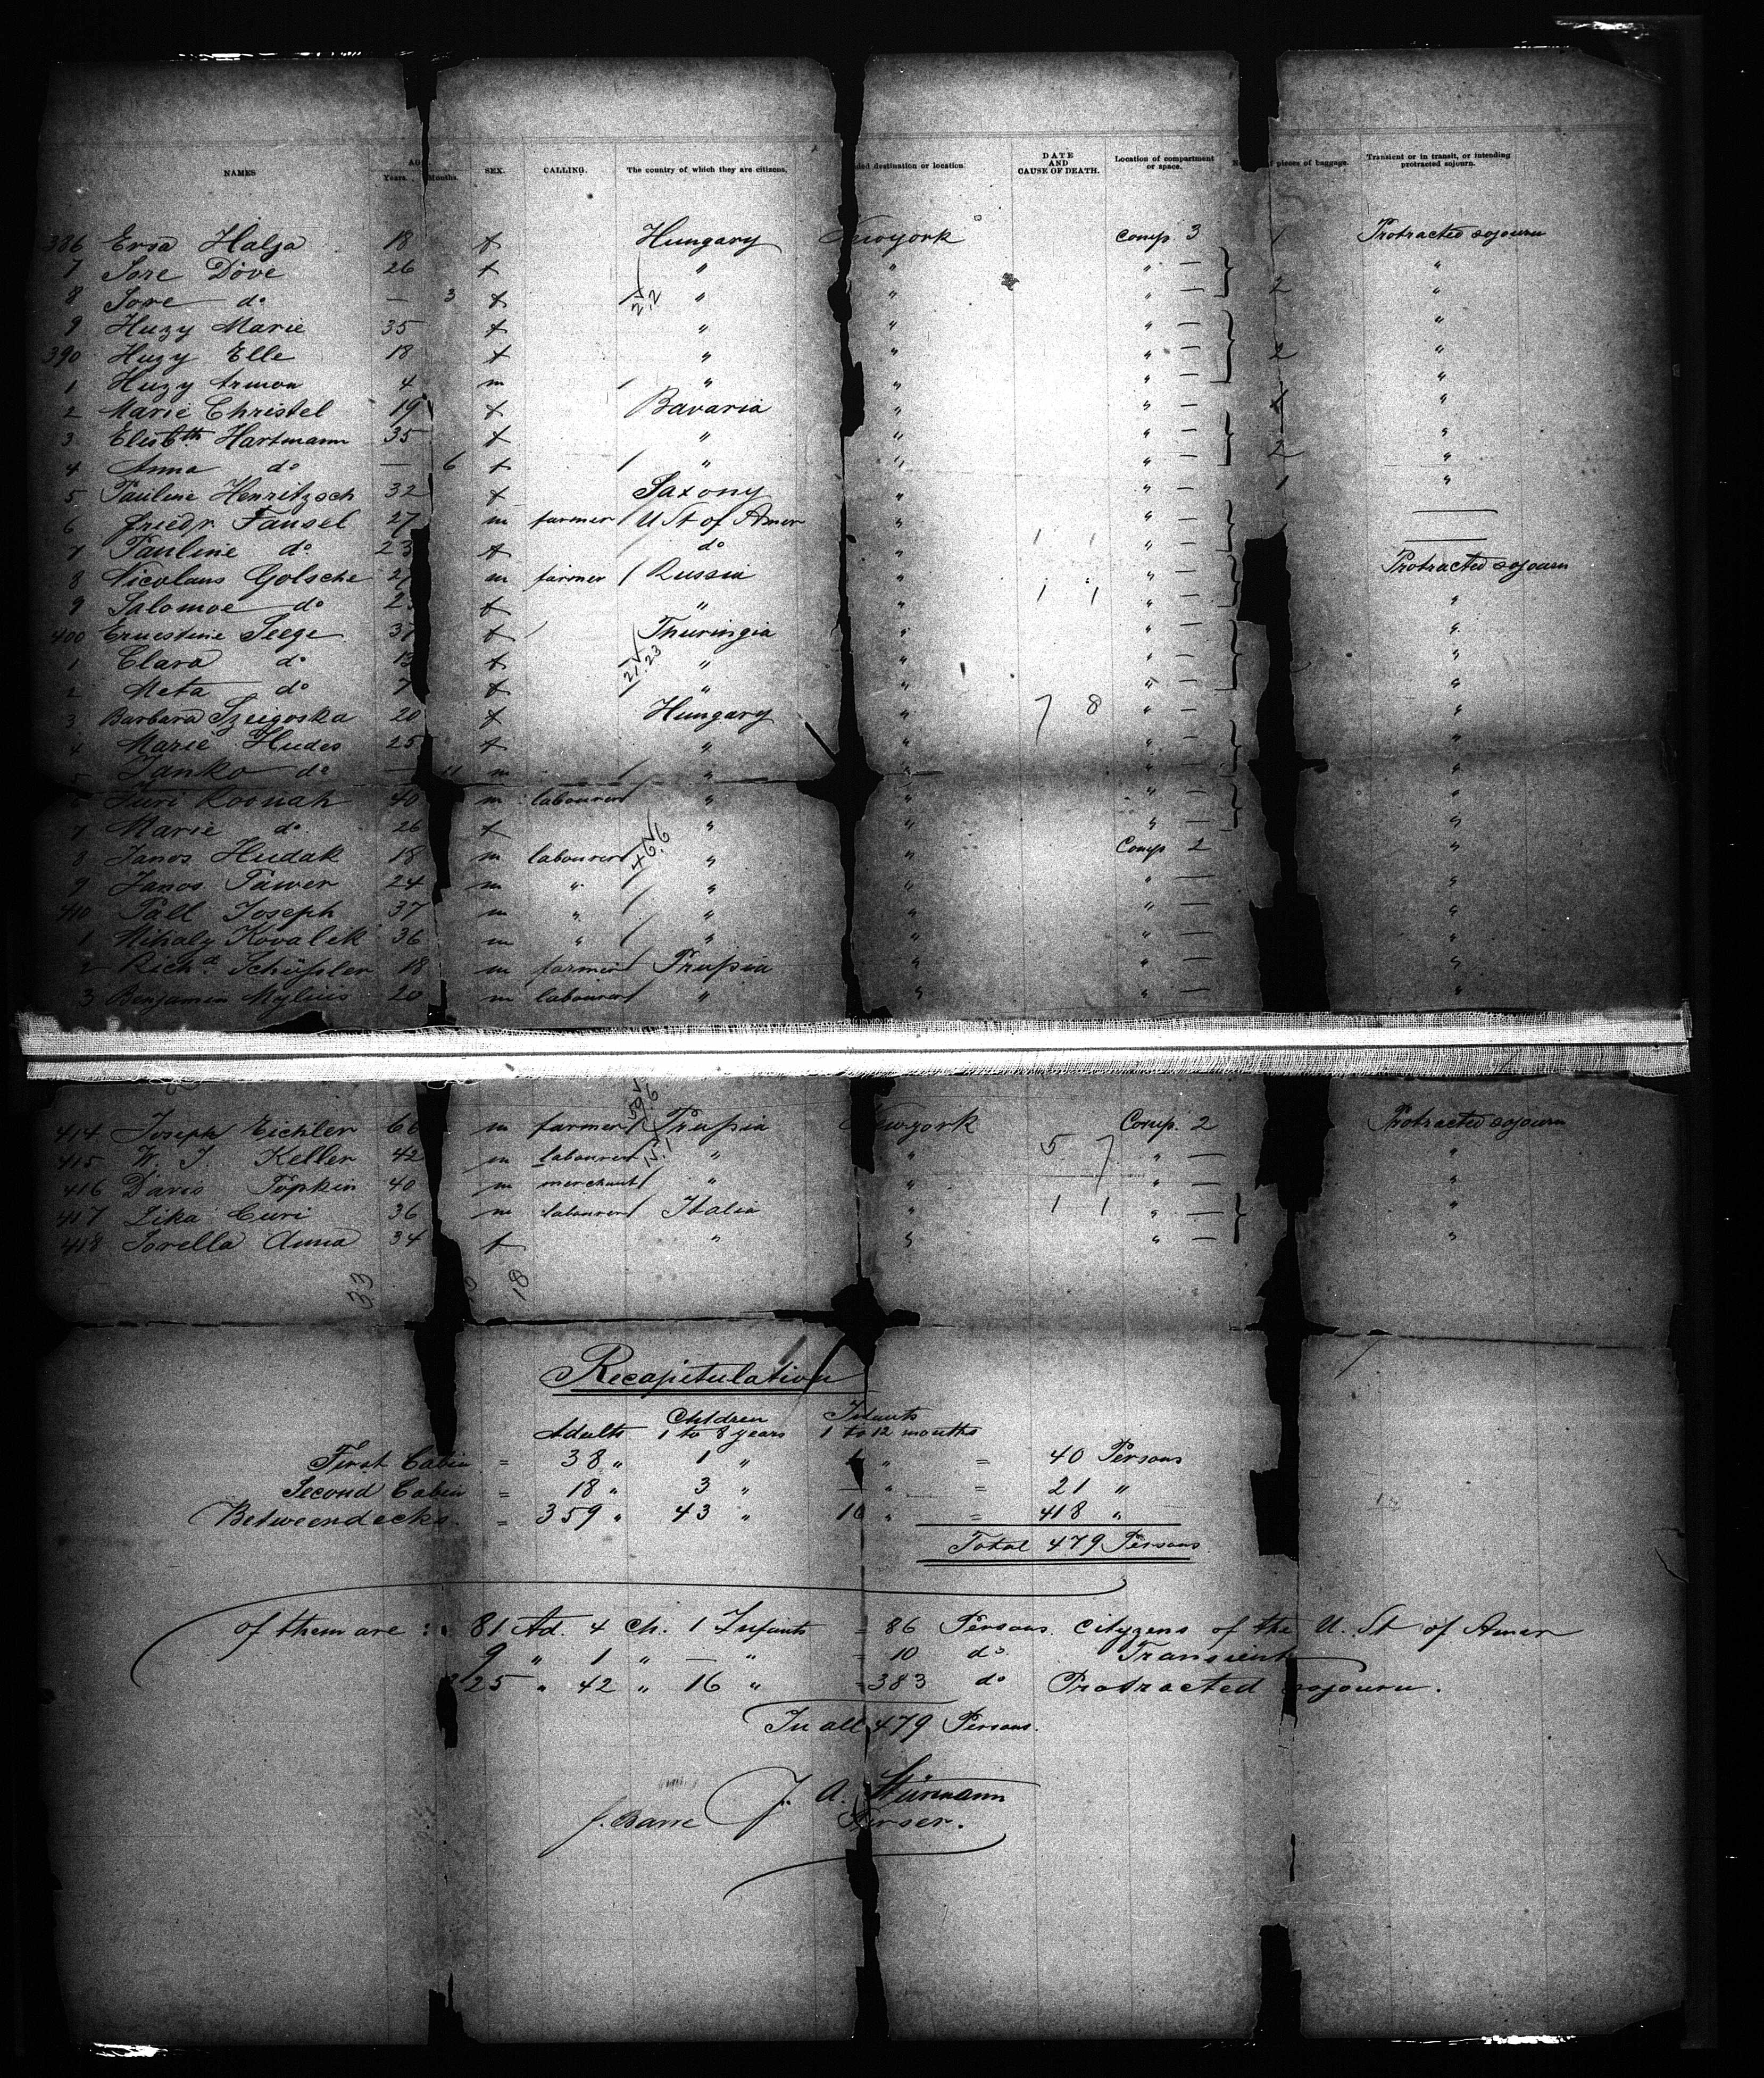 NAMES Years. Months. SEX. CALLING. The country of which they are citizens. destination or location. DATE AND CAUSE OF DEATH. Location of compartment or space. pieces of baggage. Transient or in transit, or intending protracted sojourn.
386 Ersa Halja 18 f Hungary Newyork Comp 3 1 Protracted sojourn
7 Sore Dove 26 f " " " — "
8 Sore do — 3 f " " " — 2 "
9 Huzy Marie 35 f " " " — "
390 Huzy Elle 18 f " " " — 2 "
1 Huzy 4 m " " " — "
2 Marie Christel 19 f Bavaria " " — 1 "
3 Elisbth Hartmann 35 f " " " — "
4 Anna do — 6 f " " " — 2 "
5 Pauline Henritzsch 32 f Saxony " " — 1 "
6 Friedr Fansel 27 m farmer U St of Amer " " — —
7 Pauline do 23 f do " 1 1 " — —
8 Nicolaus Golsche 27 m farmer Russia " " — Protracted sojourn
9 Salomoe do f " " 1 1 " — "
400 Ernestine Seege 37 f Thuringia " " — "
1 Clara do 13 f " " " — "
2 Meta do 7 f " " " — "
3 Barbara Szeigoska 20 f Hungary " 7 8 " — "
4 Marie Hudes 25 f " " " — "
5 Janko do — 11 m " " " — "
6 Juri Koonah 40 m labourer " " " — "
7 Marie do 26 f " " " — "
8 Janos Hudak 18 m labourer " " Comp 2 "
9 Janos Pawer 24 m " " " " — "
410 Pall Joseph 37 m " " " " — "
1 Mihaly Kovalik 36 m " " " " — "
2 Richd. Schüßler 18 m farmer Prußia " " — "
3 Benjamin Mylius 20 m labourer " " " — "
414 Joseph Eichler 66 m farmer Prußia Newyork Comp. 2 Protracted sojourn
415 W. J. Keller 42 m labourer " " 5 7 " — "
416 Davis Popkin 40 m merchant " " " — "
417 Zika Curi 36 m labourer Italia " 1 1 " — "
418 Sorella Anna 34 f " " " — "
33 18
Recapitulation
Adults Children 1 to 8 years Infants 1 to 12 months
First Cabin = 38 " 1 " 1 " = 40 Persons
Second Cabin = 18 " 3 " — " = 21 "
Betweendecks. = 359 " 43 " 16 " = 418 "
Total 479 Persons
of them are : 81 Ad. 4 Ch. 1 Infants = 86 Persons. Cityzens of the U. St of Amer
9 " 1 " — " = 10 do Transient
325 " 42 " 16 " = 383 do Protracted sojourn.
In all 479 Persons.
J. A. Stürmann
J. Barre Purser.